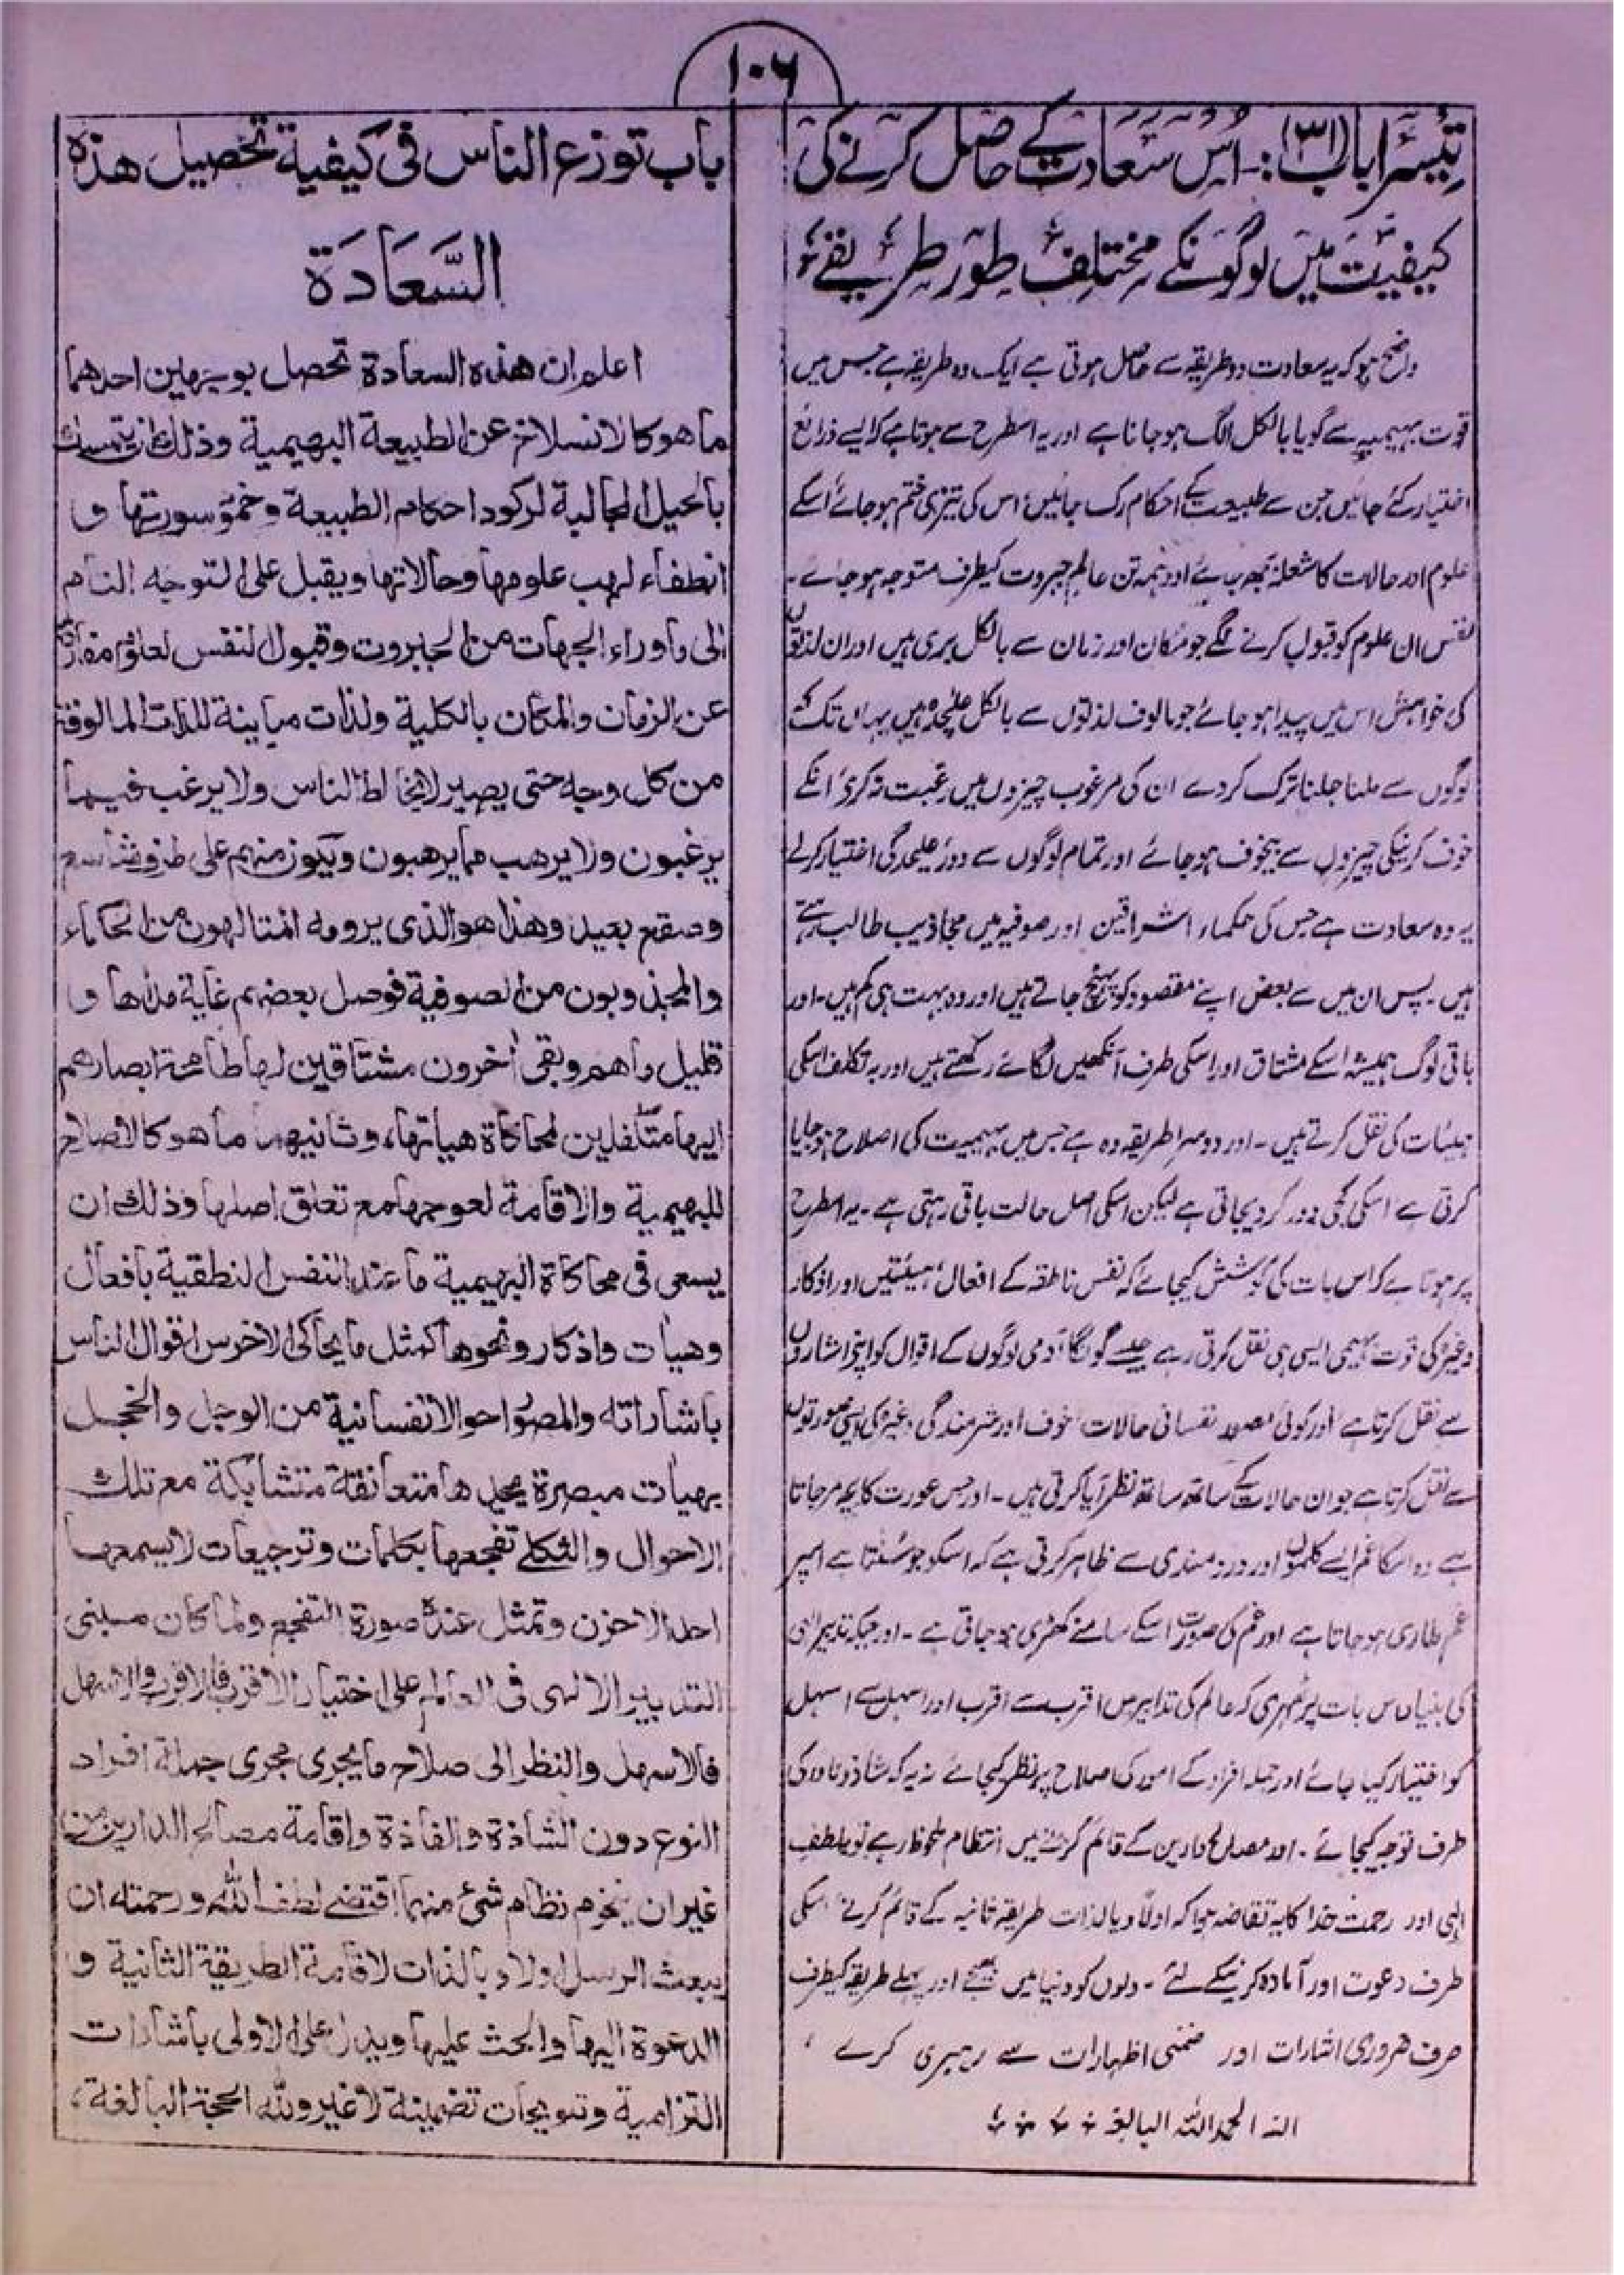 ۱۰۶
تیسرا باب (۳۱):- اُس سَعَادت کے حاصل کرنے کی
کیفیت میں لوگونکے مختلف طور طریقے
واضح ہو کہ یہ سعادت دو طریقہ سے حاصل ہوتی ہے ایک وہ طریقہ ہے جس میں
قوت بہیمیہ سے گویا بالکل الگ ہو جانا ہے اور یہ اسطرح سے ہوتا ہے کہ ایسے ذرائع
اختیار کئے جائیں جن سے طبیعت کے احکام رک جائیں، اس کی تیزی ختم ہو جائے اسکے
علوم اور حالات کا شعلہ بجھ جائے اور ہمہ تن عالم جبروت کیطرف متوجہ ہو جائے۔
نفس ان علوم کو قبول کرنے لگے جو مکان اور زمان سے بالکل بری ہیں اور ان لذتوں
کی خواہش اس میں پیدا ہو جائے جو مالوف لذتوں سے بالکل علیحدہ ہیں یہاں تک کہ
لوگوں سے ملنا جلنا ترک کر دے ان کی مرغوب چیزوں میں رغبت نہ کرے انکے
خوف کرنیکی چیزوں سے بیخوف ہو جائے اور تمام لوگوں سے دور علیحدگی اختیار کرلے
یہ وہ سعادت ہے جس کی حکماء اشراقین اور صوفیہ میں مجاذیب طالب رہتے
ہیں۔ پس ان میں سے بعض اپنے مقصود کو پہنچ جاتے ہیں اور وہ بہت ہی کم ہیں۔ اور
باقی لوگ ہمیشہ اسکے مشتاق اور اسکی طرف آنکھیں لگائے رکھتے ہیں اور بہ تکلف اسکی
ہیئات کی نقل کرتے ہیں۔ اور دوسرا طریقہ وہ ہے جس میں بہیمیت کی اصلاح ہو جایا
کرتی ہے اسکی کجی دور کر دیجاتی ہے لیکن اسکی اصل حالت باقی رہتی ہے۔ یہ اسطرح
پر ہوتا ہے کہ اس بات کی کوشش کیجائے کہ نفس ناطقہ کے افعال، ہیئتیں اور اذکار
وغیرہ کی قوت بہیمی ایسی ہی نقل کرتی رہے جیسے گونگا آدمی لوگوں کے اقوال کو اپنے اشاروں
سے نقل کرتا ہے اور کوئی مصور نفسانی حالات خوف اور شرمندگی وغیرہ کی ایسی صورتوں
سے نقل کرتا ہے جو ان حالات کے ساتھ ساتھ نظر آیا کرتی ہیں۔ اور جس عورت کا بچہ مر جاتا
ہے وہ اسکا غم ایسے کلموں اور درد مندی سے ظاہر کرتی ہے کہ اسکو جو سنتا ہے اسپر
غم طاری ہو جاتا ہے اور غم کی صورت اسکے سامنے کھڑی ہو جاتی ہے۔ اور جبکہ تدبیر الٰہی
کی بنیاد اس بات پر ٹھہری کہ عالم کی تدابیر میں اقرب سے اقرب اور اسہل سے اسہل
کو اختیار کیا جائے اور جملہ افراد کے امور کی اصلاح پر نظر کیجائے نہ یہ کہ شاذ و نادر کی
طرف توجہ کیجائے۔ اور مصالح دارین کے قائم کرنے میں انتظام ملحوظ رہے تو لطف
الٰہی اور رحمت خدا کا یہ تقاضہ ہوا کہ اولاً و بالذات طریقہ ثانیہ کے قائم کرنے اسکی
طرف دعوت اور آمادہ کرنیکے لئے۔ رسولوں کو دنیا میں بھیجے اور پہلے طریقہ کیطرف
صرف ضروری اشارات اور ضمنی اظہارات سے رہبری کرے،
الحجۃ اللہ البالغہ
باب توزع الناس فی کیفیة تحصیل هذه
السَّعَادَة
اعلم ان هذه السعادة تحصل بوجهین احدهما
ما هو کالانسلاخ عن الطبیعة البهیمیة وذلك ان یتمسك
بالحیل الجالبة لرکود احکام الطبیعة وخمود سورتها و
انطفاء لهب علومها وحالاتها ویقبل علی التوجه التام
الی ما وراء الجهات من الجبروت وقبول النفس لعلوم مفارقة
عن الزمان والمکان بالکلیة ولذات مباینة للذات المالوفة
من کل وجه حتی یصیر لا یخالط الناس ولا یرغب فیما
یرغبون ولا یرهب مما یرهبون ویکون منهم علی طرف شاسع
وصقع بعید وهذا هو الذی یرومه المتالهون من الحکماء
والمجذوبون من الصوفیة فوصل بعضهم غایة مداها و
قلیل ما هم وبقی اخرون مشتاقین لها طامحة ابصارهم
الیها متکلفین لمحاکاة هیاتها، وثانیهما ما هو کالاصلاح
للبهیمیة والاقامة لعوجها مع تعلق اصلها وذلك ان
یسعی فی محاکاة البهیمیة ما عند النفس النطقیة بافعال
وهیات واذکار ونحوها کمثل ما یحاکی الاخرس اقوال الناس
باشاراته والمصور احوالا نفسانیة من الوجل والخجل
بهیات مبصرة یجدها متعانقة متشابکة مع تلك
الاحوال والثکلی تفجعها بکلمات وترجیعات لا یسمعها
احد الا حزن وتمثل عنده صورة التفجع ولما کان مبنی
التدبیر الالهی فی العالم علی اختیار الاقرب فالاقرب والاسهل
فالاسهل والنظر الی صلاح ما یجری مجری جملة افراد
النوع دون الشاذة والفاذة واقامة مصالح الدارین من
غیر ان ینخرم نظام شئ منهما اقتضی لطف الله ورحمته ان
یبعث الرسل اولا وبالذات لاقامة الطریقة الثانیة و
الدعوة الیها والحث علیها ویدل علی الاولی باشارات
التزامیة وتلویحات تضمینیة لا غیر ولله الحجة البالغة،